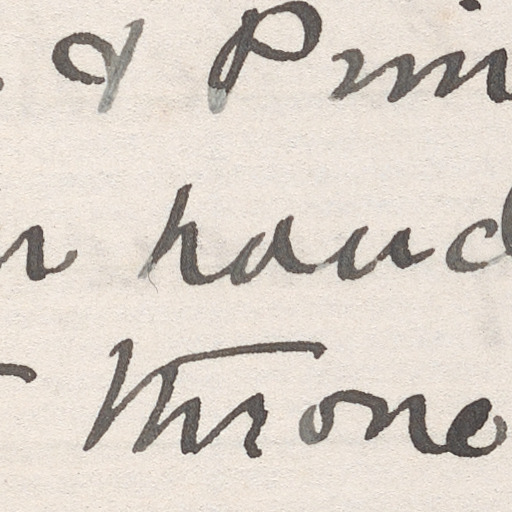 & Prin
hand
throne